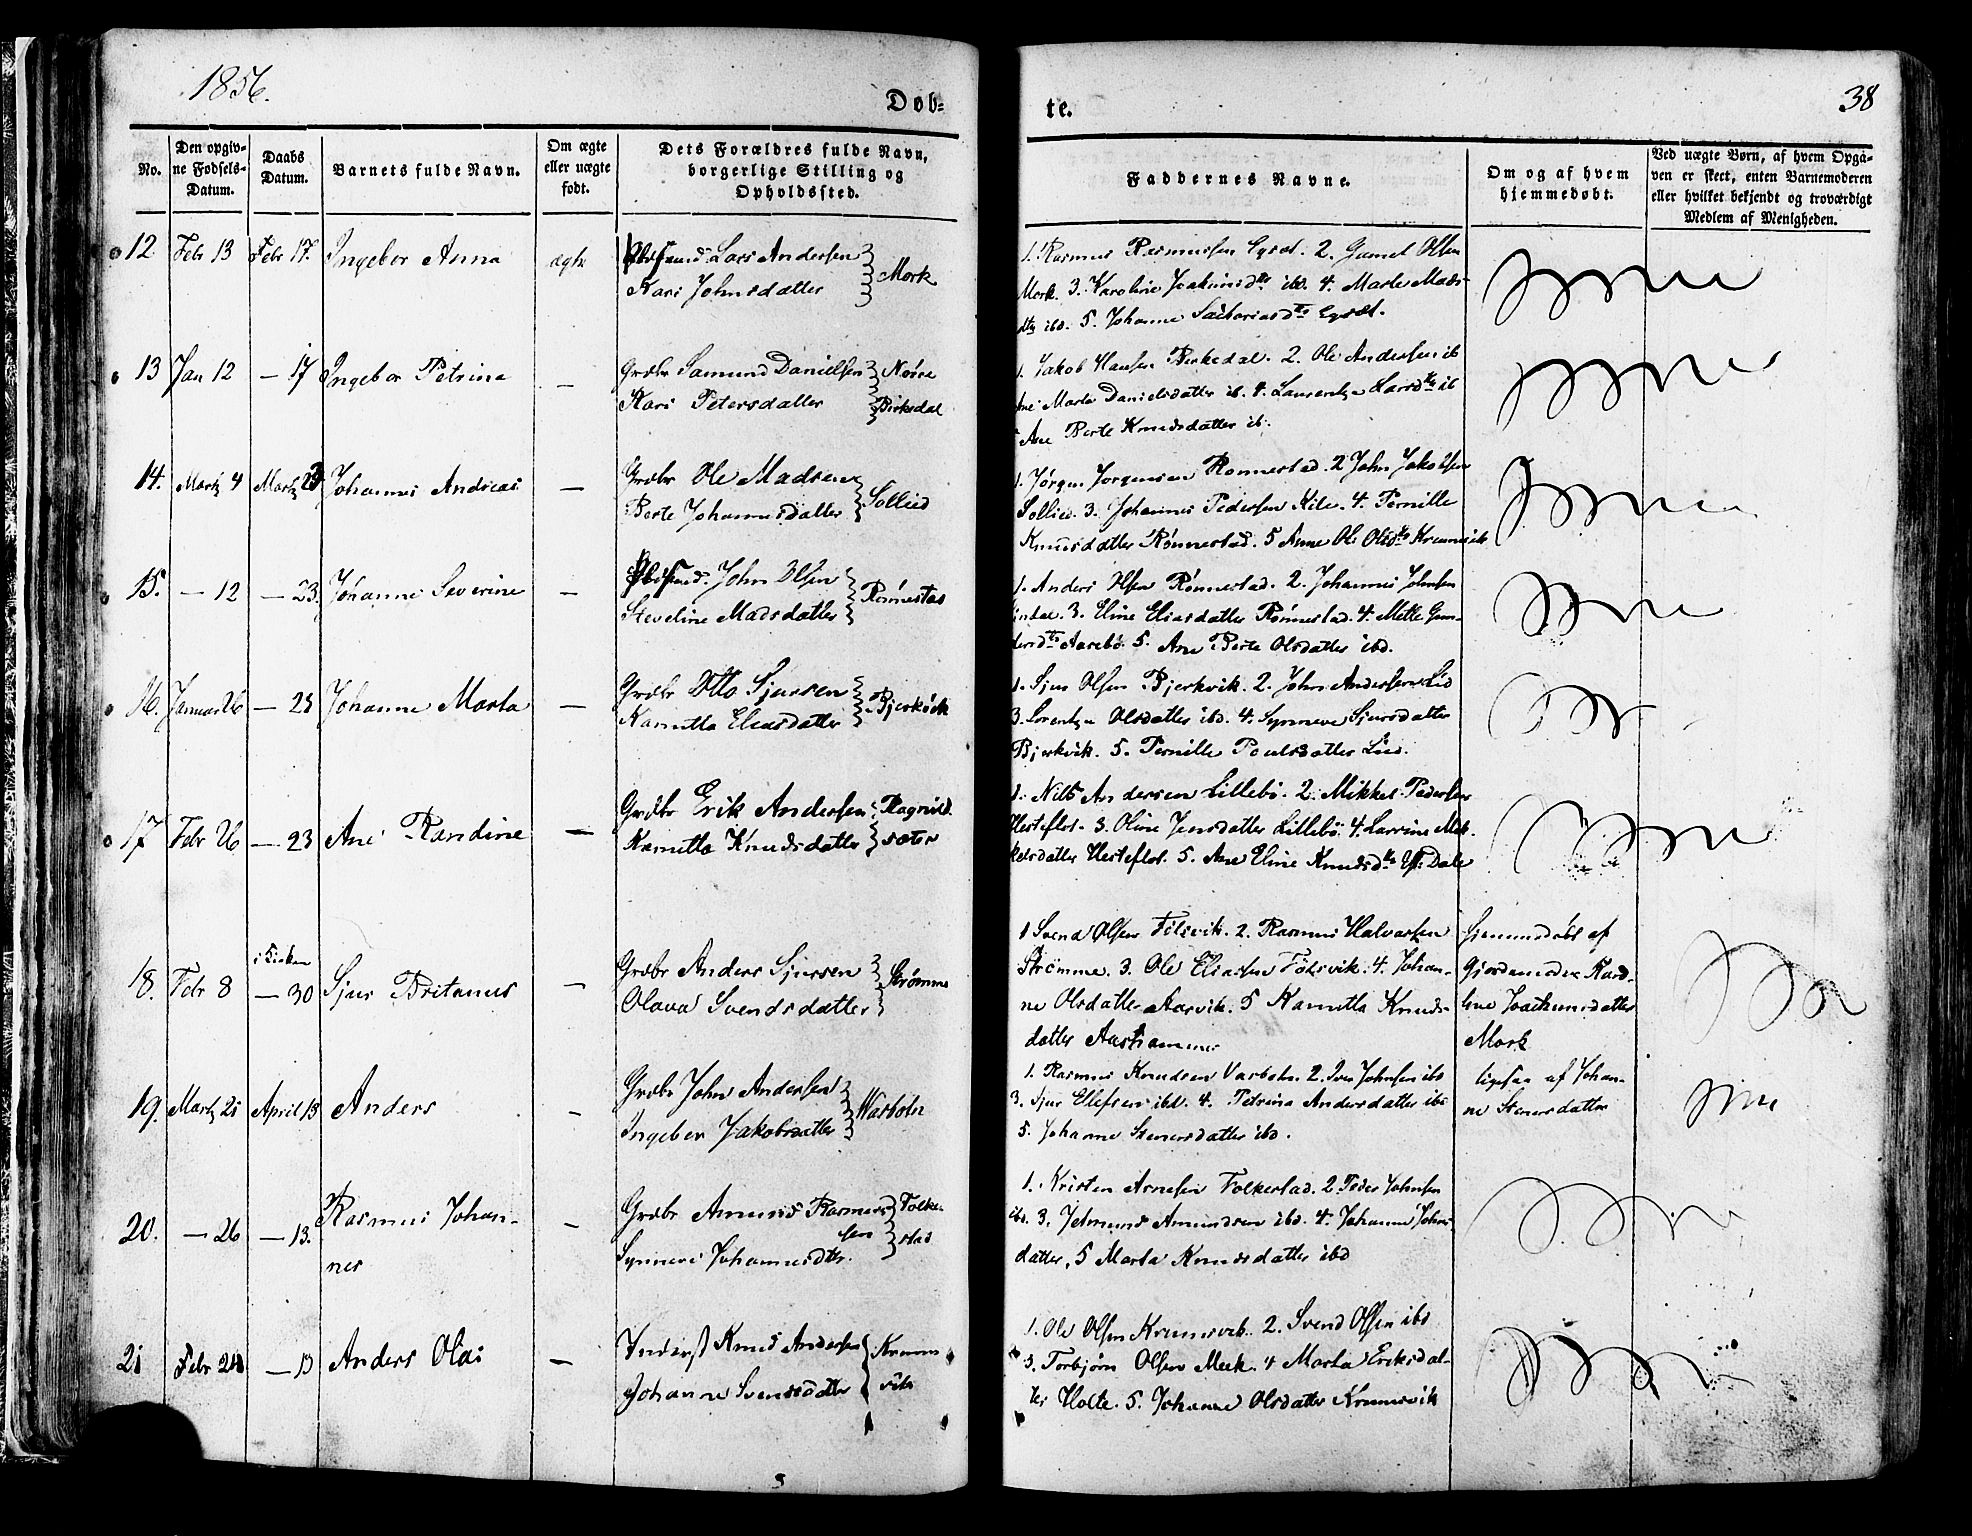 1856.
Døb=
te.
38
No.
Den opgiv-
ne Fødsels-
Datum.
Daabs
Datum.
Barnets fulde Navn.
Om ægte
eller uægte
født.
Dets Forældres fulde Navn,
borgerlige Stilling og
Opholdssted.
Faddernes Navne.
Om og af hvem
hjemmedøbt.
Ved uægte Børn, af hvem Opgå-
ven er skeet, enten Barnemoderen
eller hvilket bekjendt og troværdigt
Medlem af Menigheden.
12 Febr 13 Febr 17. Ingebor Anna ægte Lars Andersen
Kari Johnsdatter Mork
1. Rasmus Rasmussen Egset. 2. Gamel Olsen
Mork. 3. Karoline Joakimsdtr ibd. 4. Marte Mads-
dtr ibd. 5. Johanne Sachariasdtr Egset.
13 Jan 12 — 17 Ingebor Petrine — Grdbr Samund Danielsen Nøire
Kari Petersdatter Birkedal
1. Jakob Hansen Birkedal. 2. Ole Andersen ib
Marte Danielsdatter ib. 4. Laurentze Larsdtr ib
Ane Berte Knudsdatter ib.
14. Marts 4 Marts 23 Johannes Andreas — Grdbr Ole Madsen
Berte Johannesdatter Sollied
1. Jørgen Jørgensen Rønnestad. 2 John Jakobsen
Sollied. 3. Johannes Pedersen Aile. 4. Pernille
Knudsdatter Rønnestad. 5 Anne Ole Olsdtr Krumsvik
15. — 12 — 23. Johanne Severine — John Olsen
Steveline Madsdatter Rønnestad
1. Anders Olsen Rønnestad. 2. Johannes Johnsen
3. Eline Eliasdatter Rønnestad. 4. Mette Gun-
dersdtr Aarebø. 5. Ane Berte Olsdatter ibd.
16. Januar 26 — 23 Johanne Marta — Grdbr Otto Sjursen
Kamilla Eliasdatter Bjerkvik
1. Sjur Olsen Bjerkvik. 2. John Andersen Lid
3. Lorentze Olsdatter ibd. 4. Synneve Sjursdatter
Bjerkvik. 5. Pernille Poulsdatter Lied.
17 Febr 26 — 23 Ane Randine — Grdbr Erik Andersen Ragnild
Kamilla Knudsdatter sæter
1. Nils Andersen Lillebø. 2. Mikkel Pedersen
Hesteflot. 3. Oline Jensdatter Lillebø. 4. Larrine Mik-
kelsdatter Hesteflot. 5. Ane Eline Knudsdtr Dale
18. Febr 8 i Kirken
— 30 Sjur Britanus — Grdbr Anders Sjursen
Olava Svendsdatter Strømme
1 Svend Olsen Følsvik. 2. Rasmus Halvorsen
Strømme. 3. Ole Eliassen Følsvik. 4. Johan-
ne Olsdatter Aarvik. 5 Kamilla Knuds-
datter Aashammer
hjemmedøbt af
Gjordemoder Karo-
line Joachimsdatter
Mork
19. Marts 21 April 13 Anders — Grdbr John Andersen
Ingebor Jakobsdatter Warholm
1. Rasmus Knudsen Varholm. 2. Iver Johnsen ibd
3. Sjur Ellefsen ibd. 4. Petrina Andersdatter ibd
5. Johanne Stenersdatter ibd.
ligesaa af Johan-
ne Stenersdatter
20. — 26 — 13. Rasmus Johan-
nes — Grdbr Amund Rasmus
sen
Synneve Johannesdtr. Folke-
stad
1. Kristen Arnesen Folkestad. 2 Peder Johnsen
ibd. 3. Jetmund Amundsen ibd. 4. Johanne Johns
datter, 5 Marta Knudsdatter ibd
21 Febr 24 — 13 Anders Olai — Inderst Knud Andersen
Johanne Svendsdatter Krums
vik
1. Ole Olsen Krumsvik. 2. Svend Olsen ibd
3. Torbjørn Olsen Meek. 4 Marta Eriksdat-
ter Holte. 5. Johanne Olsdatter Krumsvik